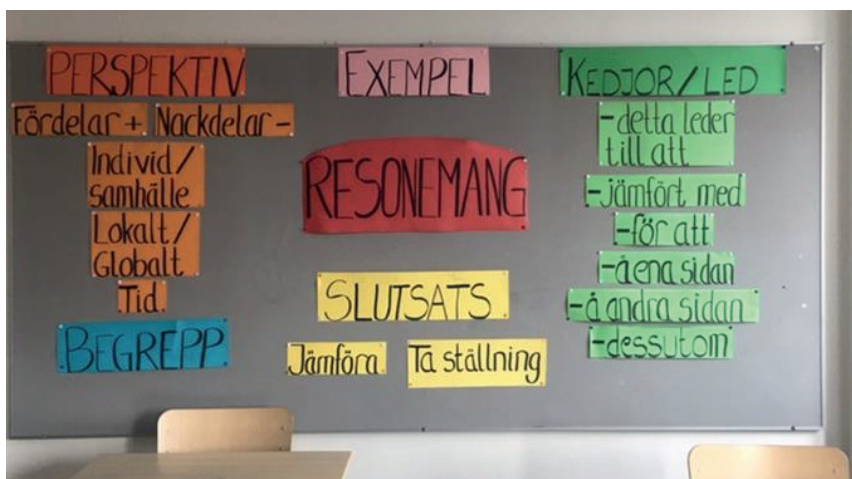 PERSPEKTIV
Fördelar + Nackdelar -
Individ/
samhälle
Lokalt/
Globalt
Tid
BEGREPP
EXEMPEL
RESONEMANG
SLUTSATS
Jämföra Ta ställning
KEDJOR/LED
-detta leder
till att
-jämfört med
-för att
-å ena sidan
-å andra sidan
-dessutom